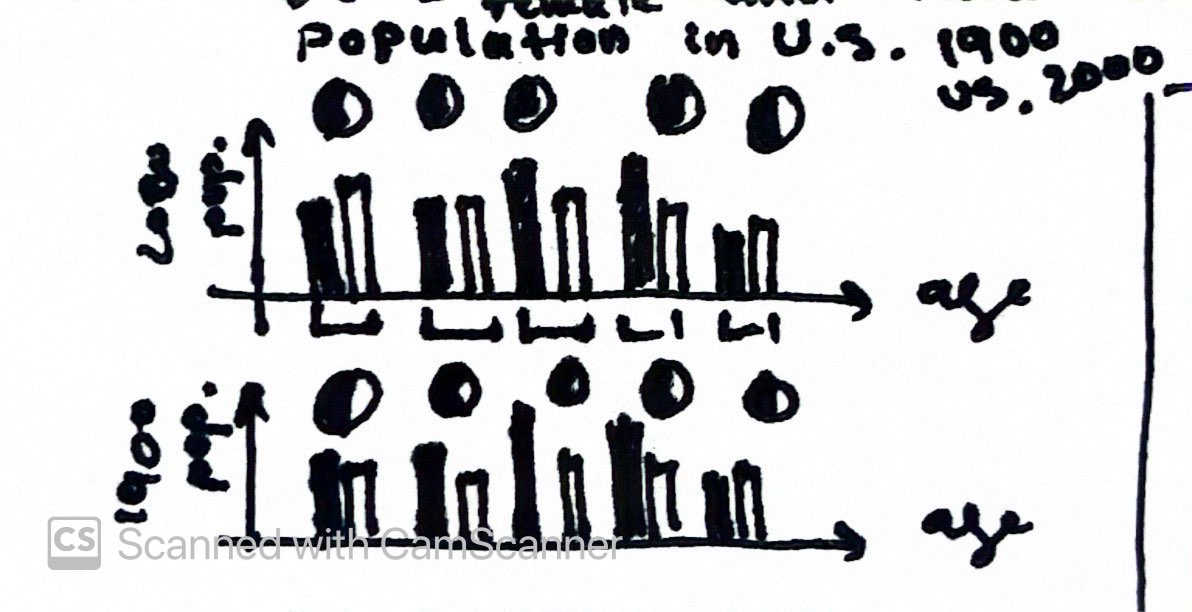 Population in U.S. 1900
vs. 2000
2000
pop.
age
1900
pop.
age
CS Scanned with CamScanner